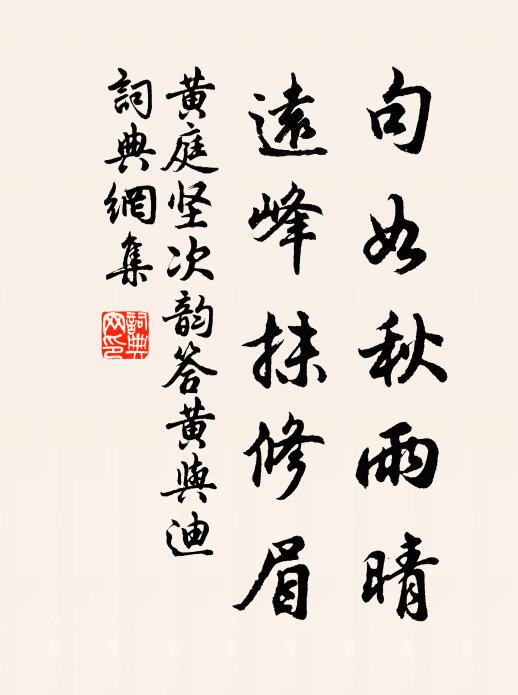 句如秋雨晴
遠峰抹修眉
黄庭坚次韵答黄與迪
詞典網集
詞典网印